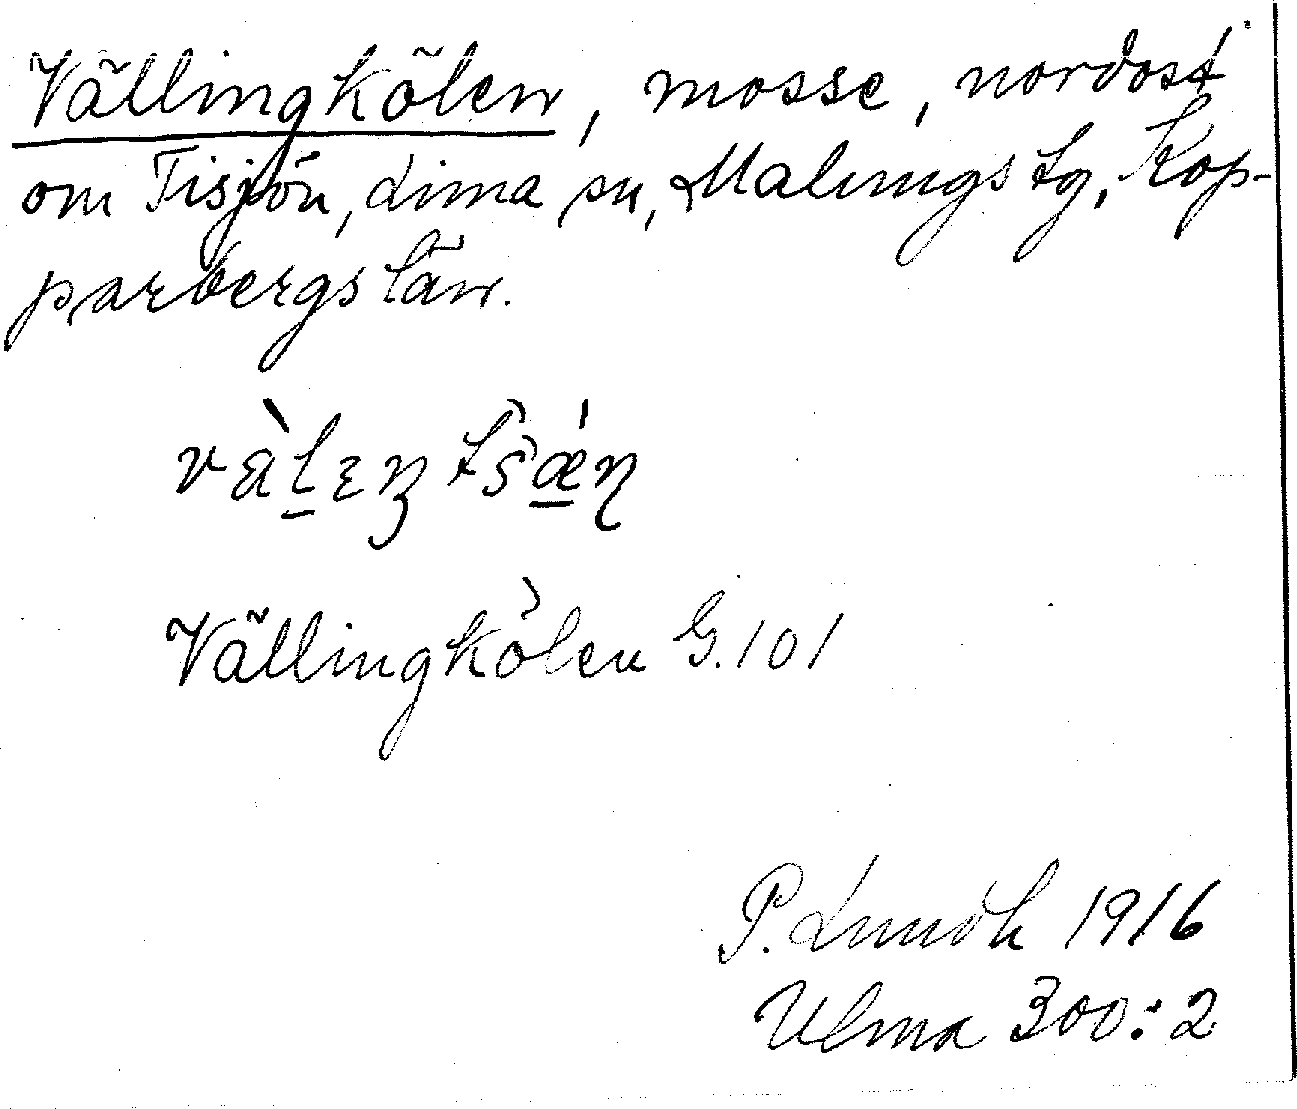 Vällingkölen, mosse, nordost
om Tisjön, Lima sn, Malungs tg, Kop-
parbergs län.
Vällingkölen G.101
P. Lundh 1916
Ulma 300:2